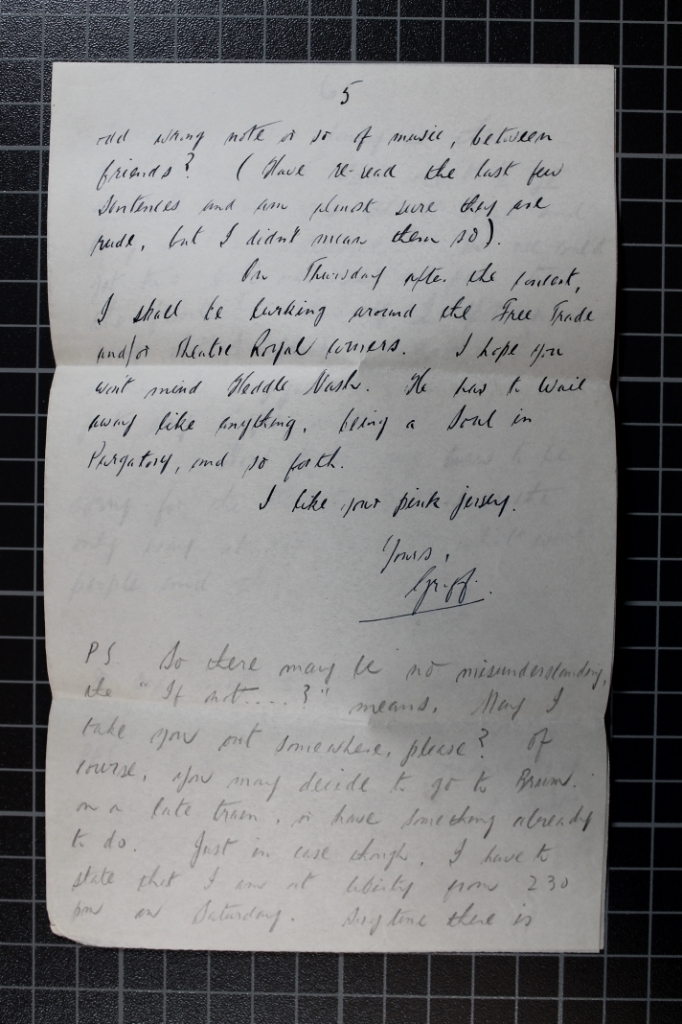 5
odd wrong note or so of music, between
friends? (Have re-read the last few
sentences and am almost sure they are
rude, but I didn't mean them so).
On Thursday after the concert,
I shall be lurking around the Free Trade
and/or Theatre Royal corners. I hope you
won't mind Heddle Nash. He has to wail
away like anything, being a Soul in
Purgatory, and so forth.
I like your pink jersey.
Yours,
Griff.
PS So there may be no misunderstanding,
the "If not....?" means, May I
take you out somewhere, please? Of
course, you may decide to go to Brum.
on a late train, or have something already
to do. Just in case though, I have to
state that I am at liberty from 230
pm on Saturday. Anytime there is